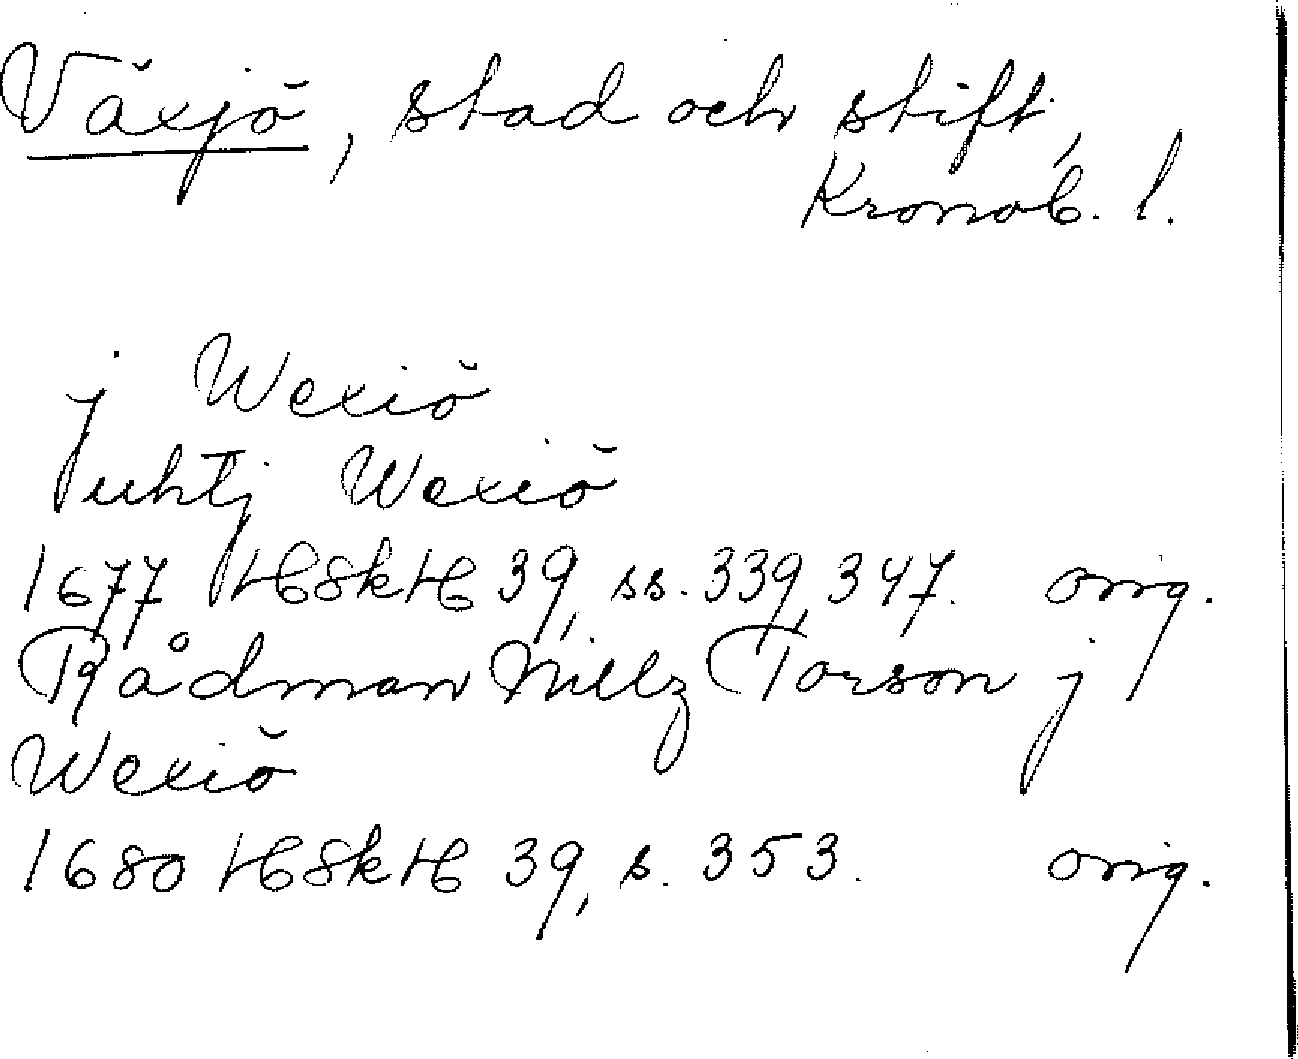 Växjö, stad och stift,
Kronob. l.
j Wexiö
uhtj Wexiö
1677 HSkH 39, ss. 339, 347. orig.
Rådman Nillz Torson j
Wexiö
1680 HSkH 39, s. 353. orig.